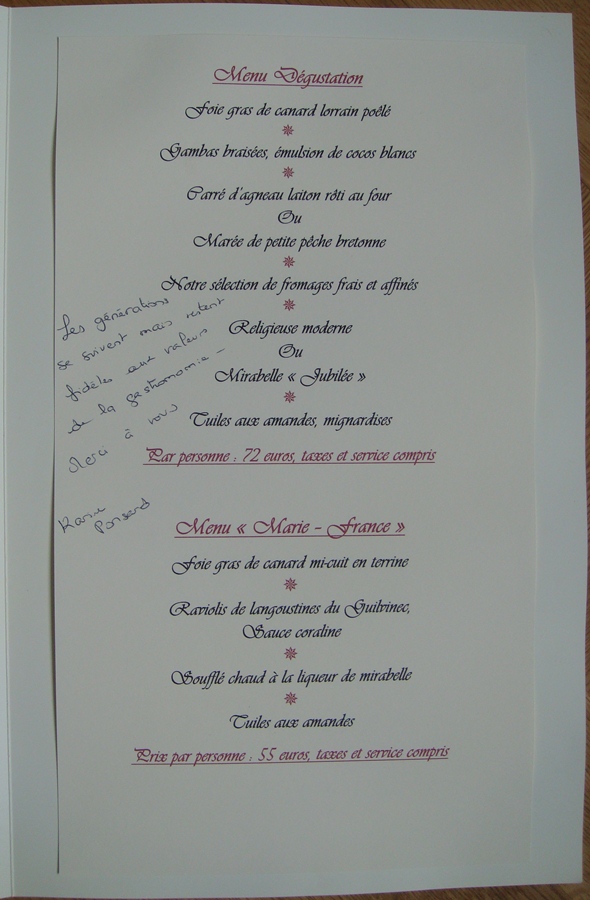 Menu Dégustation
Foie gras de canard lorrain poêlé
Gambas braisées, émulsion de cocos blancs
Carré d'agneau laiton rôti au four
Ou
Marée de petite pêche bretonne
Notre sélection de fromages frais et affinés
Religieuse moderne
Ou
Mirabelle « Jubilée »
Tuiles aux amandes, mignardises
Par personne : 72 euros, taxes et service compris
Les générations
se suivent mais restent
fidèles aux valeurs
de la gastronomie -
Merci à vous
Menu « Marie - France »
Foie gras de canard mi-cuit en terrine
Raviolis de langoustines du Guilvinec,
Sauce coraline
Soufflé chaud à la liqueur de mirabelle
Tuiles aux amandes
Prix par personne : 55 euros, taxes et service compris